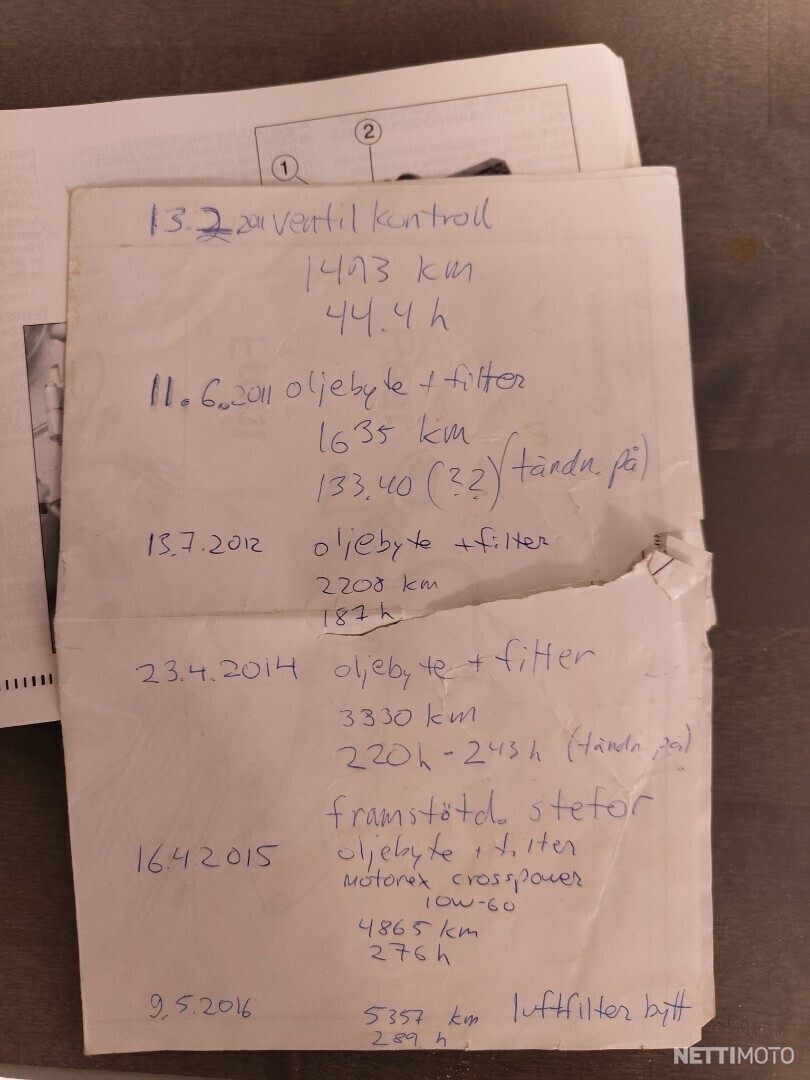 2
1
13.2 2011 ventil kontroll
1493 km
44.4 h
11.6.2011 oljebyte + filter
1635 km
133.40 (??) (tändn. på)
13.7.2012 oljebyte + filter
2208 km
187 h
23.4.2014 oljebyte + filter
3330 km
220 h - 243 h (tändn. på)
framstötd. stefor
16.4 2015 oljebyte + filter
Motorex crosspower
10W-60
4865 km
276 h
9.5.2016 5357 km luftfilter bytt
289 h
NETTIMOTO